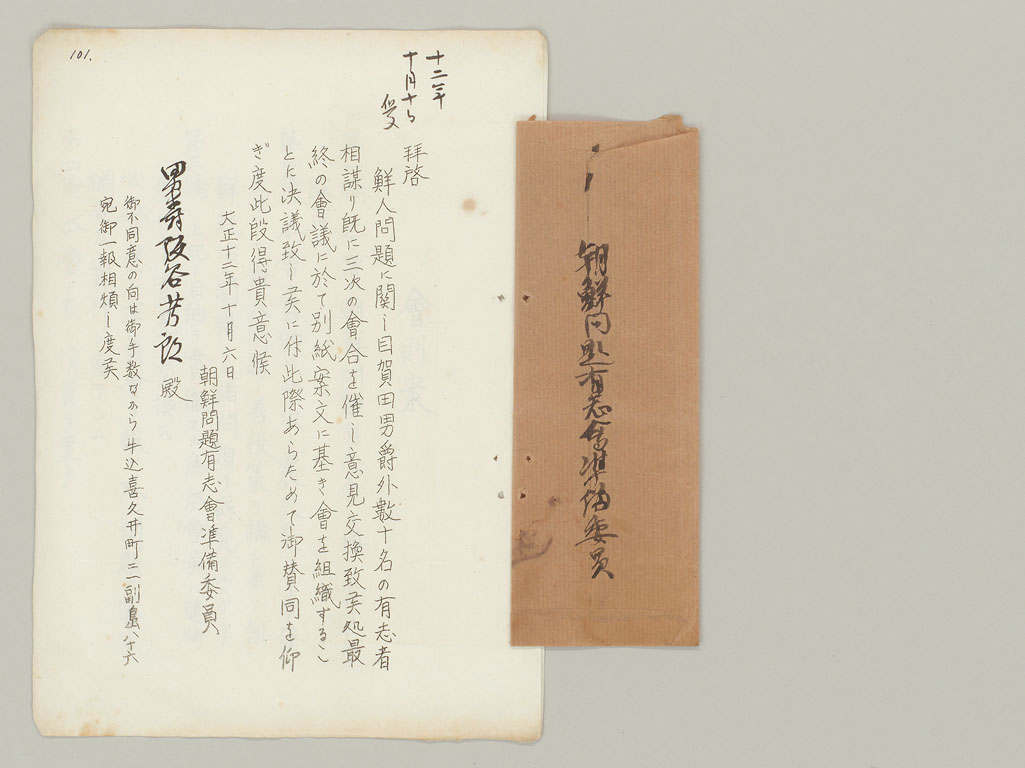 101.
十二年
十月十日
受
拝啓
鮮人問題に関し目賀田男爵外數十名の有志者
相謀り既に三次の會合を催し意見交換致候処最
終の會議に於て別紙案文に基き會を組織するこ
とに決議致し候に付此際あらためて御賛同を仰
ぎ度此段得貴意候
大正十二年十月六日
朝鮮問題有志會準備委員
男爵阪谷芳郎殿
御不同意の向は御手数ながら牛込喜久井町二二副島八十六
宛御一報相煩し度候
朝鮮問題有志会準備委員